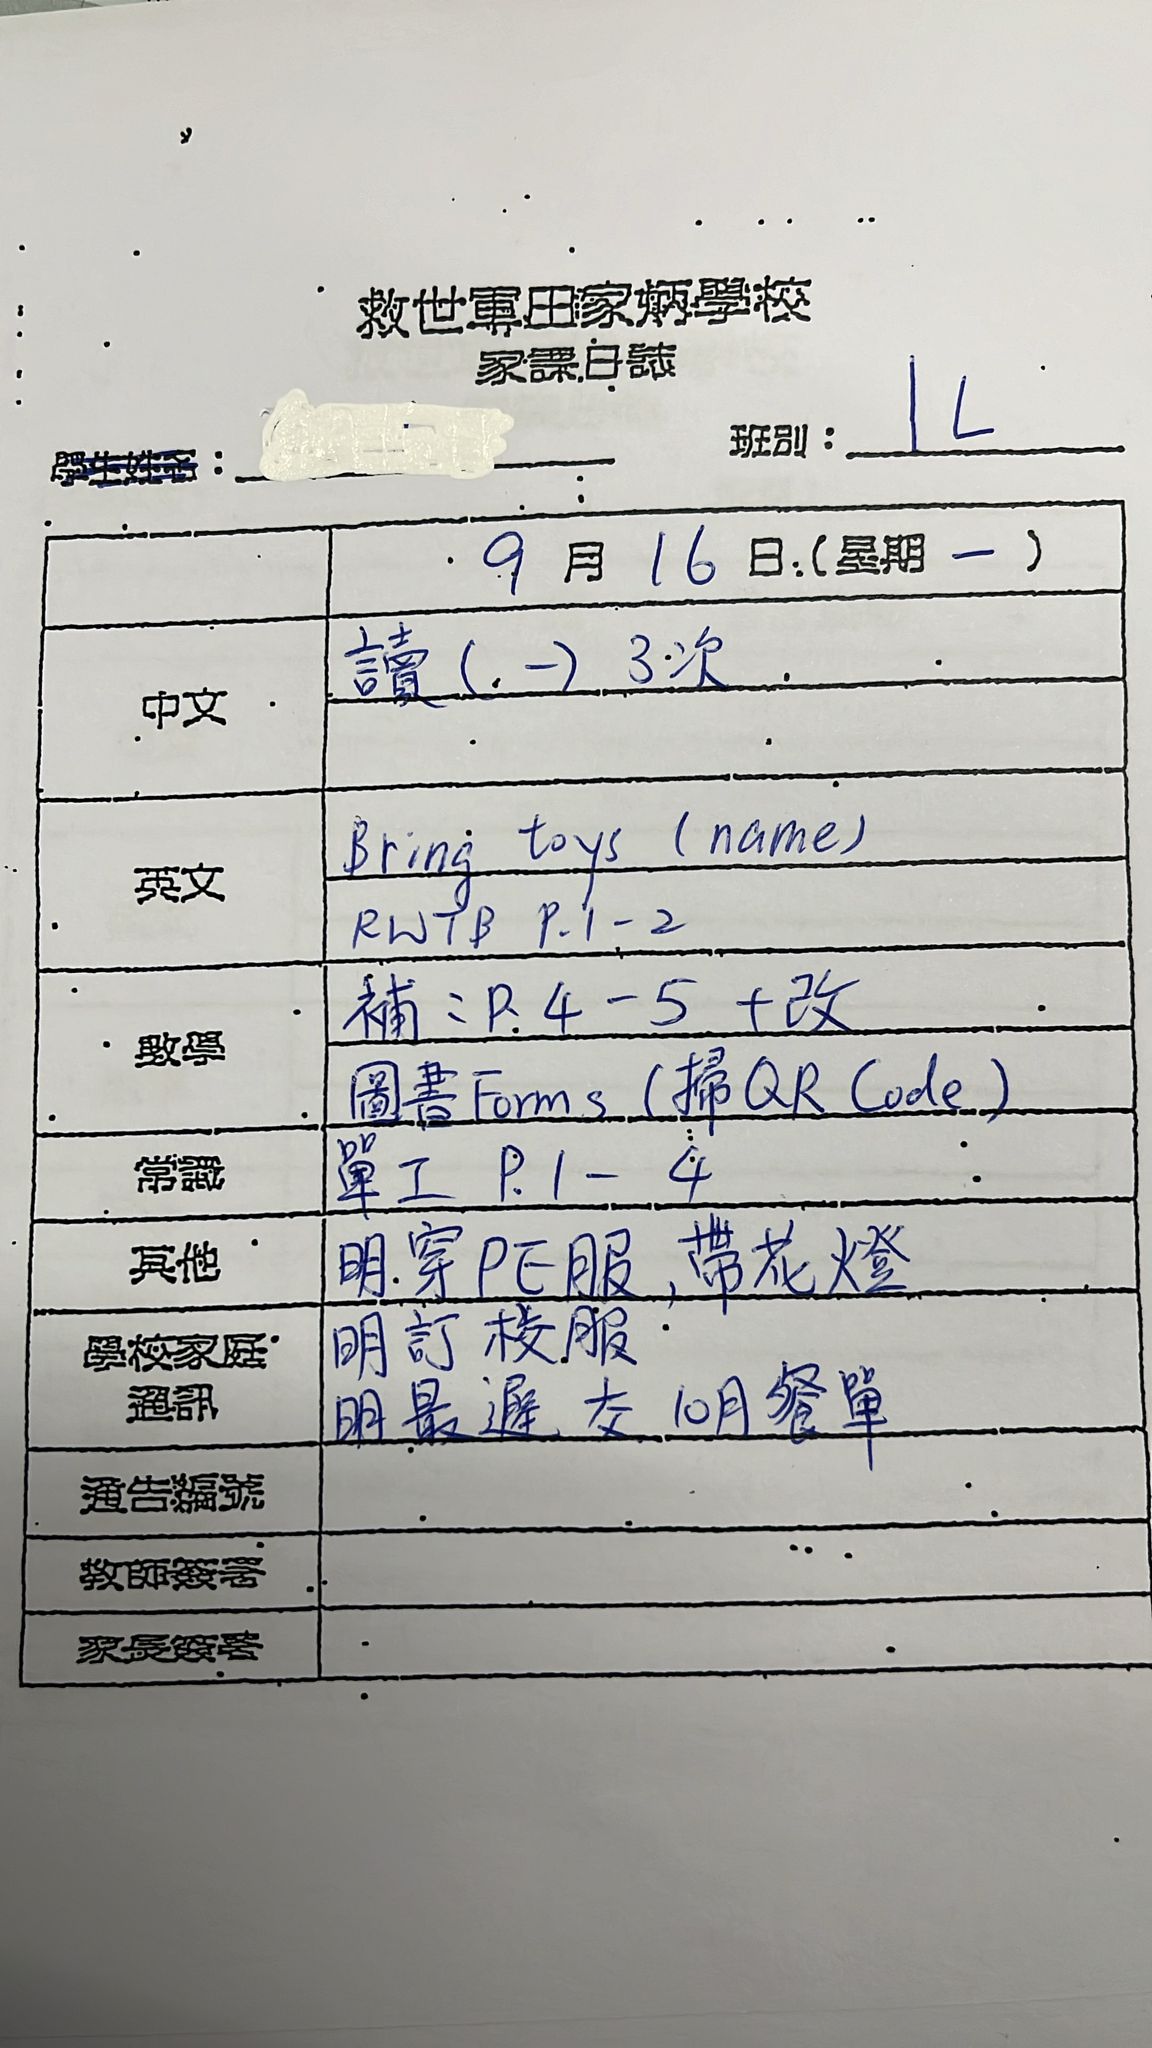 救世軍田家炳學校
家課日誌
學生姓名：
班別： 1L
9月16日(星期一)
中文
讀(一) 3次
英文
Bring toys (name)
RWTB P.1-2
數學
補：P.4-5 +改
圖書Forms (掃QR Code)
常識
單工 P.1-4
其他
明穿PE服,帶花燈
學校家庭
通訊
明訂校服
明最遲交10月餐單
通告編號
教師簽署
家長簽署